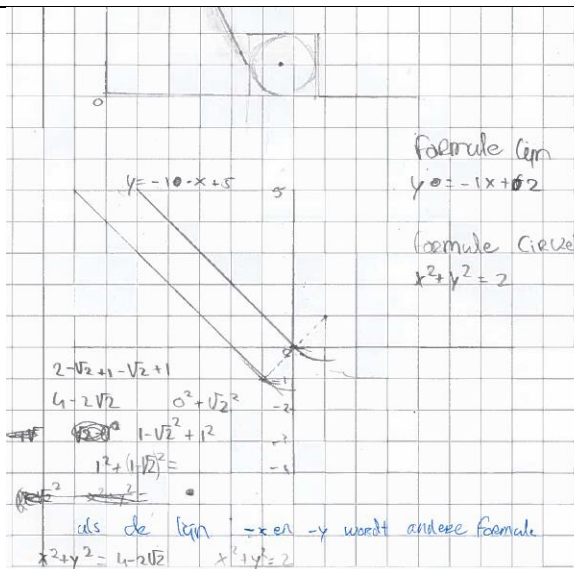 0
Formule lijn
y = -10 · x + 5
5
y = -1x + 2
formule Circel
x² + y² = 2
2 - √2 + 1 - √2 + 1
4 - 2√2
0² + √2²
-2
1 - √2² + 1²
1² + (1 - √2)² =
als de lijn -x en -y wordt andere formule
x² + y² = 4 - 2√2
x² + y² = 2